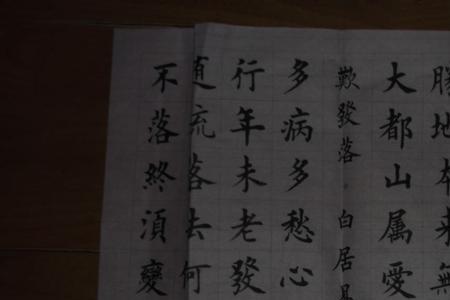 勝地本来無
大都山属愛
歎發落 白居易
多病多愁心
行年未老發
随梳落去何
不落終湏變